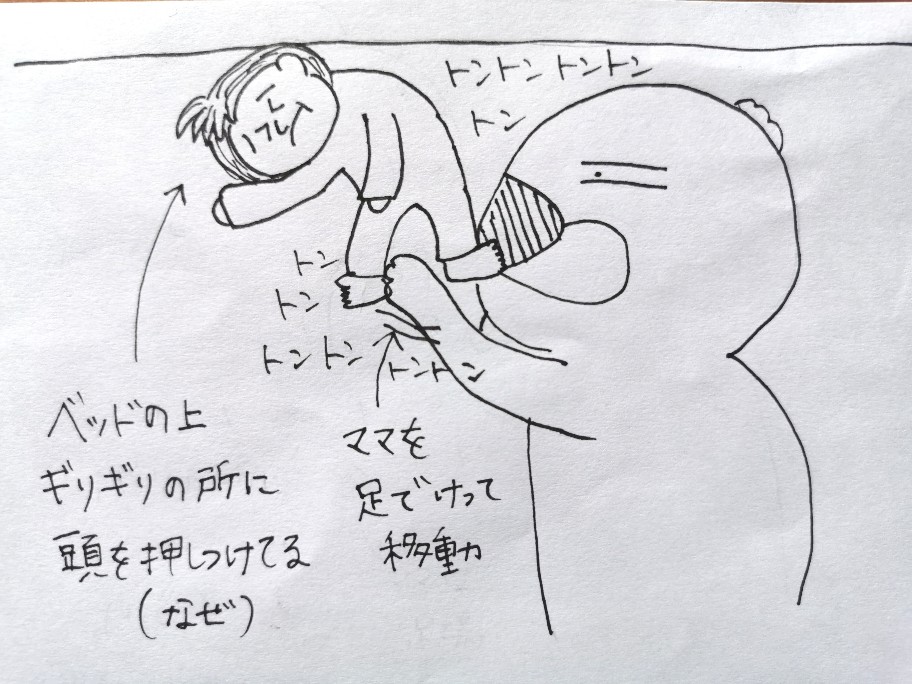 トントントントン
トン
トン
トン
トントン
トントン
ベッドの上
ギリギリの所に
頭を押しつけてる
(なぜ)
ママを
足でけって
移動